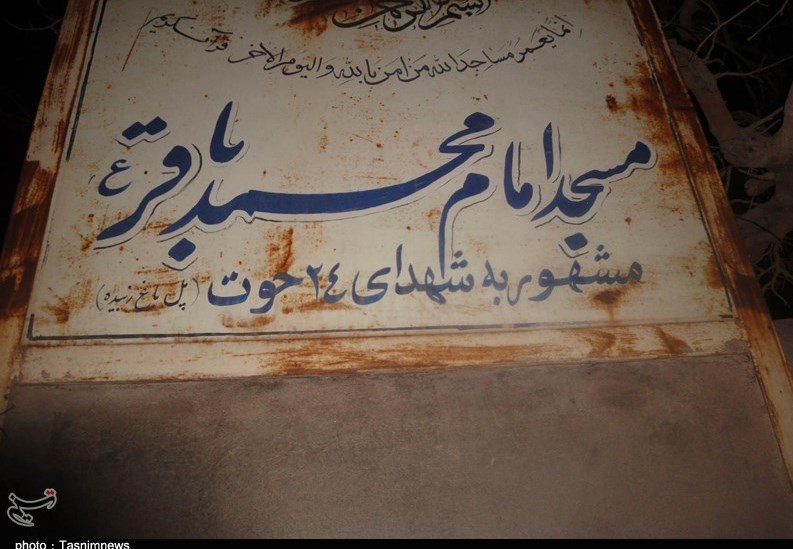 بسم الله الرحمن
انما یعمر مساجد الله من امن بالله والیوم الاخر قرآن کریم
مسجد امام محمد باقر ع
مشهور به شهدای ٢٤ حوت (پل باغ زبیده)
تسنیم
photo : Tasnimnews